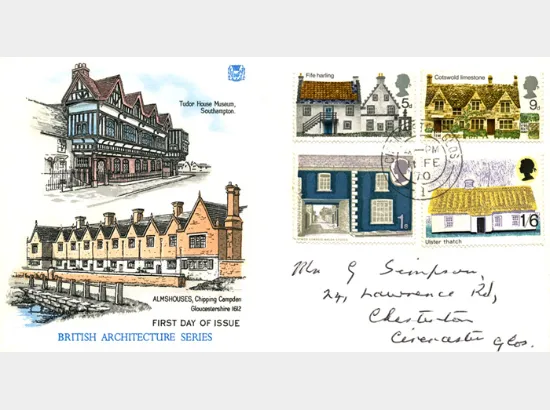 Tudor House Museum,
Southampton.
ALMSHOUSES, Chipping Campden
Gloucestershire 1612
FIRST DAY OF ISSUE
BRITISH ARCHITECTURE SERIES
Fife harling
5d
Cotswold limestone
9d
1/-
Ulster thatch
1/6
PM
FE
70
G Simpson,
24, Lawrence Rd,
Chesterton
Cirencester Glos.